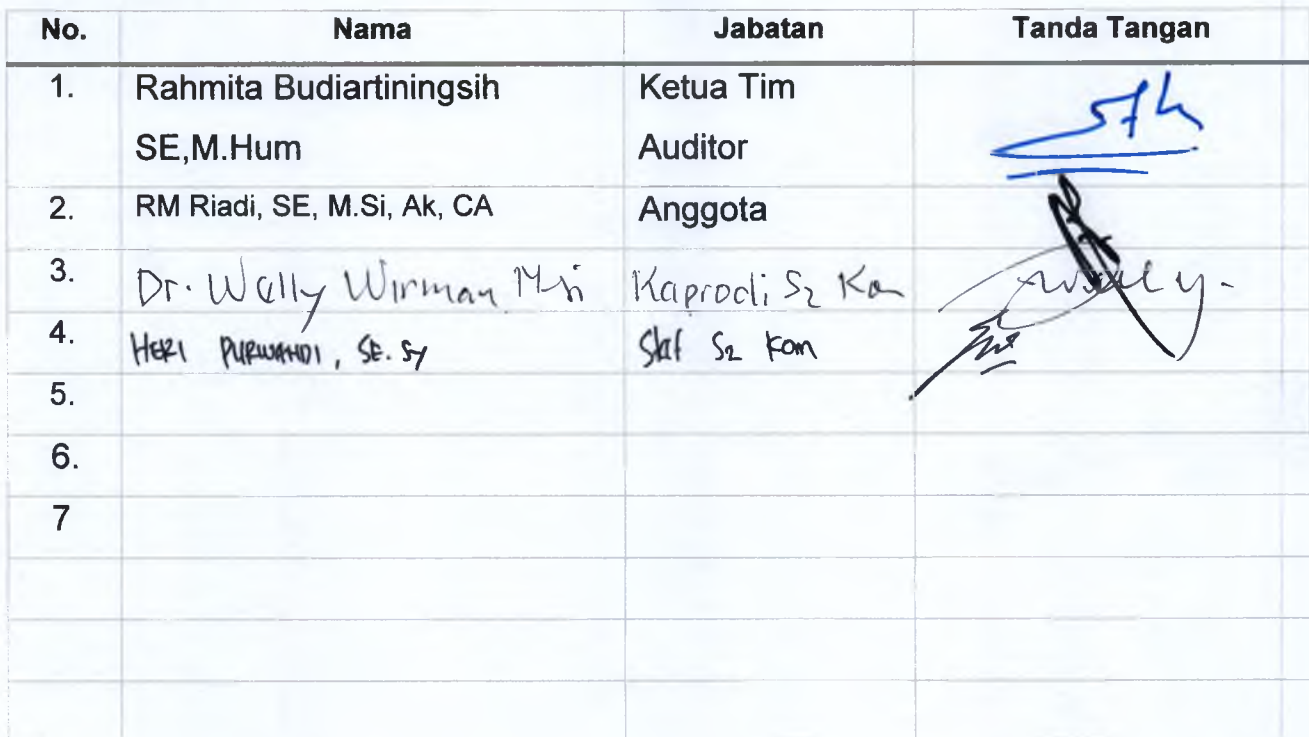 No. Nama Jabatan Tanda Tangan
1. Rahmita Budiartiningsih Ketua Tim
SE,M.Hum Auditor
2. RM Riadi, SE, M.Si, Ak, CA Anggota
3. Dr. Welly Wirman M.Si Kaprodi S2 Kom
4. HERI PURWANDI, SE. Sy Staf S2 Kom
5.
6.
7